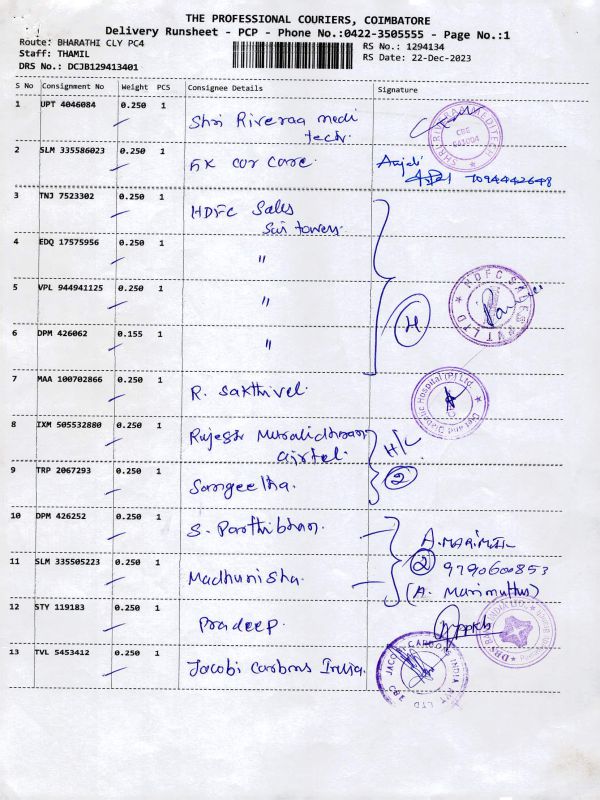 THE PROFESSIONAL COURIERS, COIMBATORE
Delivery Runsheet - PCP - Phone No.:0422-3505555 - Page No.:1
Route: BHARATHI CLY PC4
RS No.: 1294134
Staff: THAMIL
RS Date: 22-Dec-2023
DRS No.: DCJB129413401
S No Consignment No Weight PCS Consignee Details Signature
1 UPT 4046084 0.250 1 Shri Riveraa medi
tech.
CBE
641004
2 SLM 335586023 0.250 1 FX car care. Anjali
7094442648
3 TNJ 7523302 0.250 1 HDFC Sales
Sui towers
4 EDQ 17575956 0.250 1 "
5 VPL 944941125 0.250 1 "
HDFC SALES PVT LTD
H
6 DPM 426062 0.155 1 "
7 MAA 100702866 0.250 1 R. Sakthivel.
Hospital (P) Ltd.
8 IXM 505532880 0.250 1 Rajesh Muralidharan
airtel.
H/L
9 TRP 2067293 0.250 1 Sangeetha.
2
10 DPM 426252 0.250 1 S. Parthiban.
11 SLM 335505223 0.250 1 Madhunisha.
2 9790600853
(A. Marimuthu)
12 STY 119183 0.250 1 Pradeep.
INDIA LTD.
13 TVL 5453412 0.250 1 Jacobi Carbons India.
JACOBI CARBONS INDIA PVT LTD